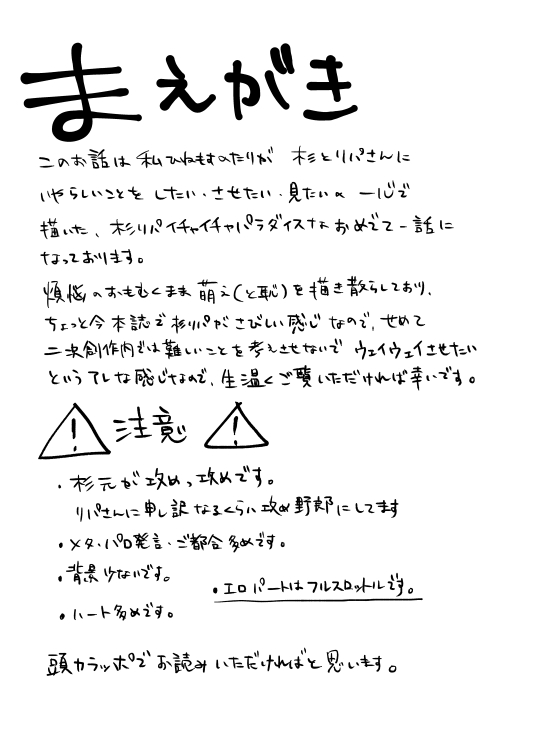 まえがき
このお話は私ひねもすのたりが 杉とリパさんに
いやらしいことを したい・させたい・見たいの 一心で
描いた、杉リパイチャイチャパラダイスなおめでて一話に
なっております。
煩悩のおもむくまま萌え(と恥)を描き散らしており、
ちょっと今本誌で杉リパがさびしい感じなので、せめて
二次創作内では難しいことを考えさせないで ウェイウェイさせたい
というアレな感じなので、生温くご覧いただければ幸いです。
⚠注意⚠
・杉元が攻めっ攻めです。
リパさんに申し訳なるくらい攻め野郎にしてます
・メタ・パロ発言・ご都合多めです。
・背景少ないです。
・エロパートはフルスロットルです。
・ハート多めです。
頭カラッポでお読みいただければと思います。